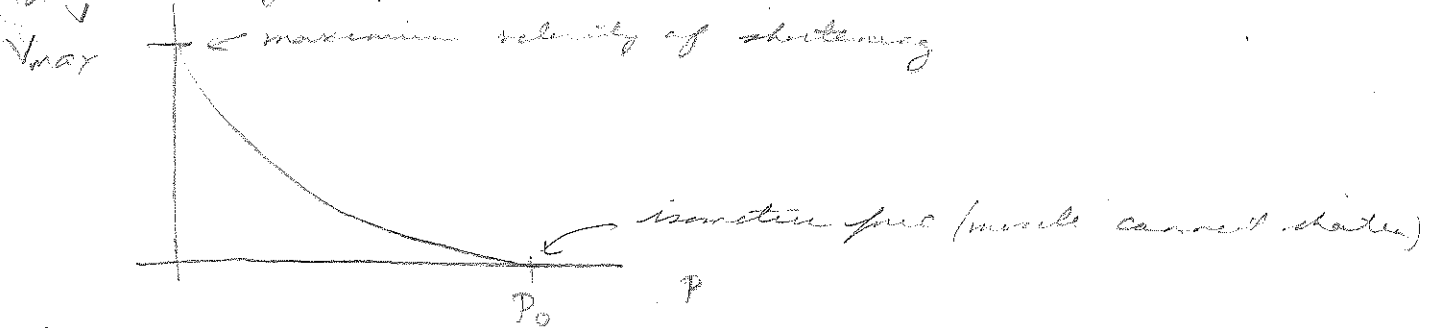 V
Vmax
maximum velocity of shortening
isometric force (muscle cannot shorten)
P₀
P